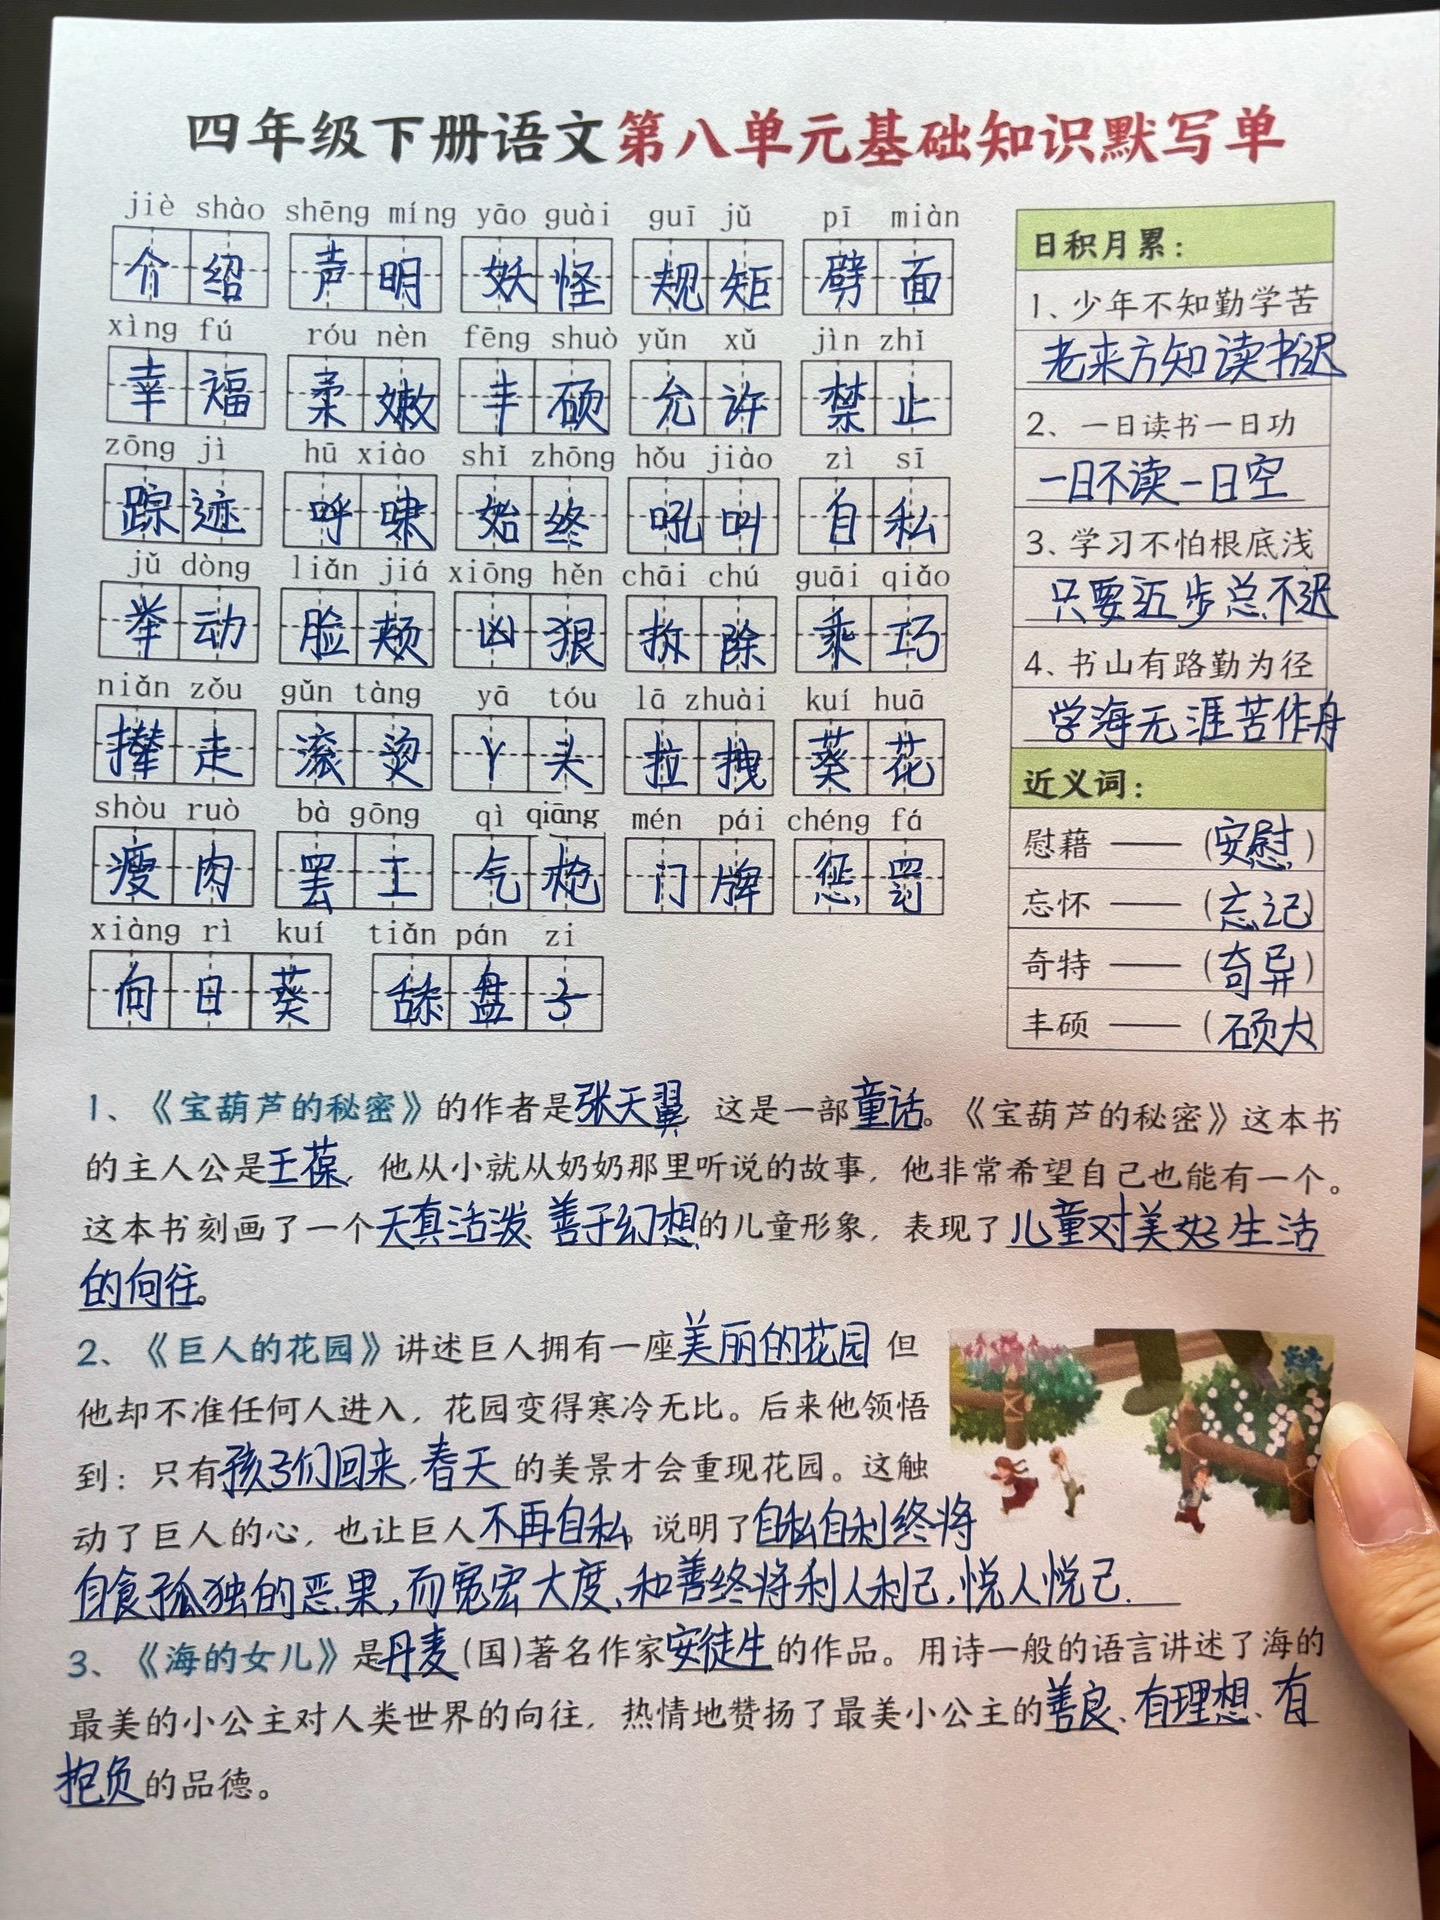 四年级下册语文第八单元基础知识默写单
jiè shào shēng míng yāo guài guī jǔ pī miàn
介绍 声明 妖怪 规矩 劈面
xìng fú róu nèn fēng shuò yǔn xǔ jìn zhǐ
幸福 柔嫩 丰硕 允许 禁止
zōng jì hū xiào shǐ zhōng hǒu jiào zì sī
踪迹 呼啸 始终 吼叫 自私
jǔ dòng liǎn jiá xiōng hěn chāi chú guāi qiǎo
举动 脸颊 凶狠 拆除 乘巧
niǎn zǒu gǔn tàng yā tóu lā zhuài kuí huā
撵走 滚烫 丫头 拉拽 葵花
shòu ruò bà gōng qì qiāng mén pái chéng fá
瘦肉 罢工 气枪 门牌 惩罚
xiàng rì kuí tiǎn pán zi
向日葵 舔盘子
日积月累：
1、少年不知勤学苦
老来方知读书迟
2、一日读书一日功
一日不读一日空
3、学习不怕根底浅
只要迈步总不迟
4、书山有路勤为径
学海无涯苦作舟
近义词：
慰藉 —— (安慰)
忘怀 —— (忘记)
奇特 —— (奇异)
丰硕 —— (硕大)
1、《宝葫芦的秘密》的作者是张天翼 这是一部童话。《宝葫芦的秘密》这本书
的主人公是王葆，他从小就从奶奶那里听说的故事，他非常希望自己也能有一个。
这本书刻画了一个天真活泼、善于幻想的儿童形象，表现了儿童对美好生活
的向往。
2、《巨人的花园》讲述巨人拥有一座美丽的花园 但
他却不准任何人进入，花园变得寒冷无比。后来他领悟
到：只有孩子们回来，春天 的美景才会重现花园。这触
动了巨人的心，也让巨人不再自私。说明了自私自利终将
自食孤独的恶果，而宽宏大度、和善终将利人利己，悦人悦己.
3、《海的女儿》是丹麦(国)著名作家安徒生的作品。用诗一般的语言讲述了海的
最美的小公主对人类世界的向往，热情地赞扬了最美小公主的善良、有理想、有
抱负的品德。